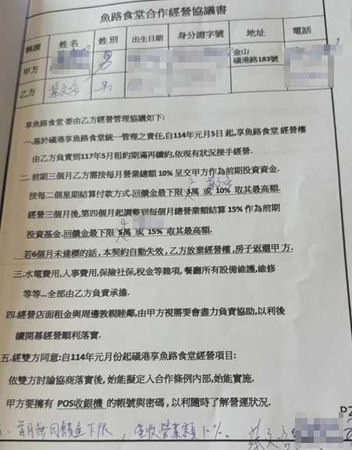 魚路食堂合作經營協議書
稱謂 姓名 性別 出生日期 身分證字號 地址 電話
甲方 男 金山 磺港路183號
乙方
享魚路食堂 委由乙方經營管理協議如下:
一.基於磺港享魚路食堂統一管理之責任,自114年元月5日起,享魚路食堂 經營權
由乙方負責到117年5月租約期滿再續約,依現有狀況接手經營.
二.前期三個月乙方需按每月營業額 10% 呈交甲方作為前期投資資金.
按每二個星期結算付款方式-回饋金最下限 3萬 或 10% 取其最高額.
經營三個月後,第四個月起調整到每個月總營業額結算 15% 作為前期
投資基金.回饋金最下限 3萬 或 15% 取其最高額.
若6個月未達標的話,本契約自動失效,乙方放棄經營權,房子返還甲方.
三.水電費用,人事費用,保險社保,稅金等雜項,餐廳所有設備維護,維修
等等...全部由乙方負責承擔.
四.經營店面租金與周邊敦親睦鄰,由甲方視需要會盡力負責協助,以利後
續開幕經營順利落實.
五.經雙方同意:自114年元月份起磺港享魚路食堂經營項目:
依雙方討論協商落實後,始能擬定人合作條例內部,始能實施.
甲方要擁有 POS收銀機 的帳號與密碼,以利隨時了解營運狀況.
首月無回饋金下限, 僅收營業額10%. 蔡